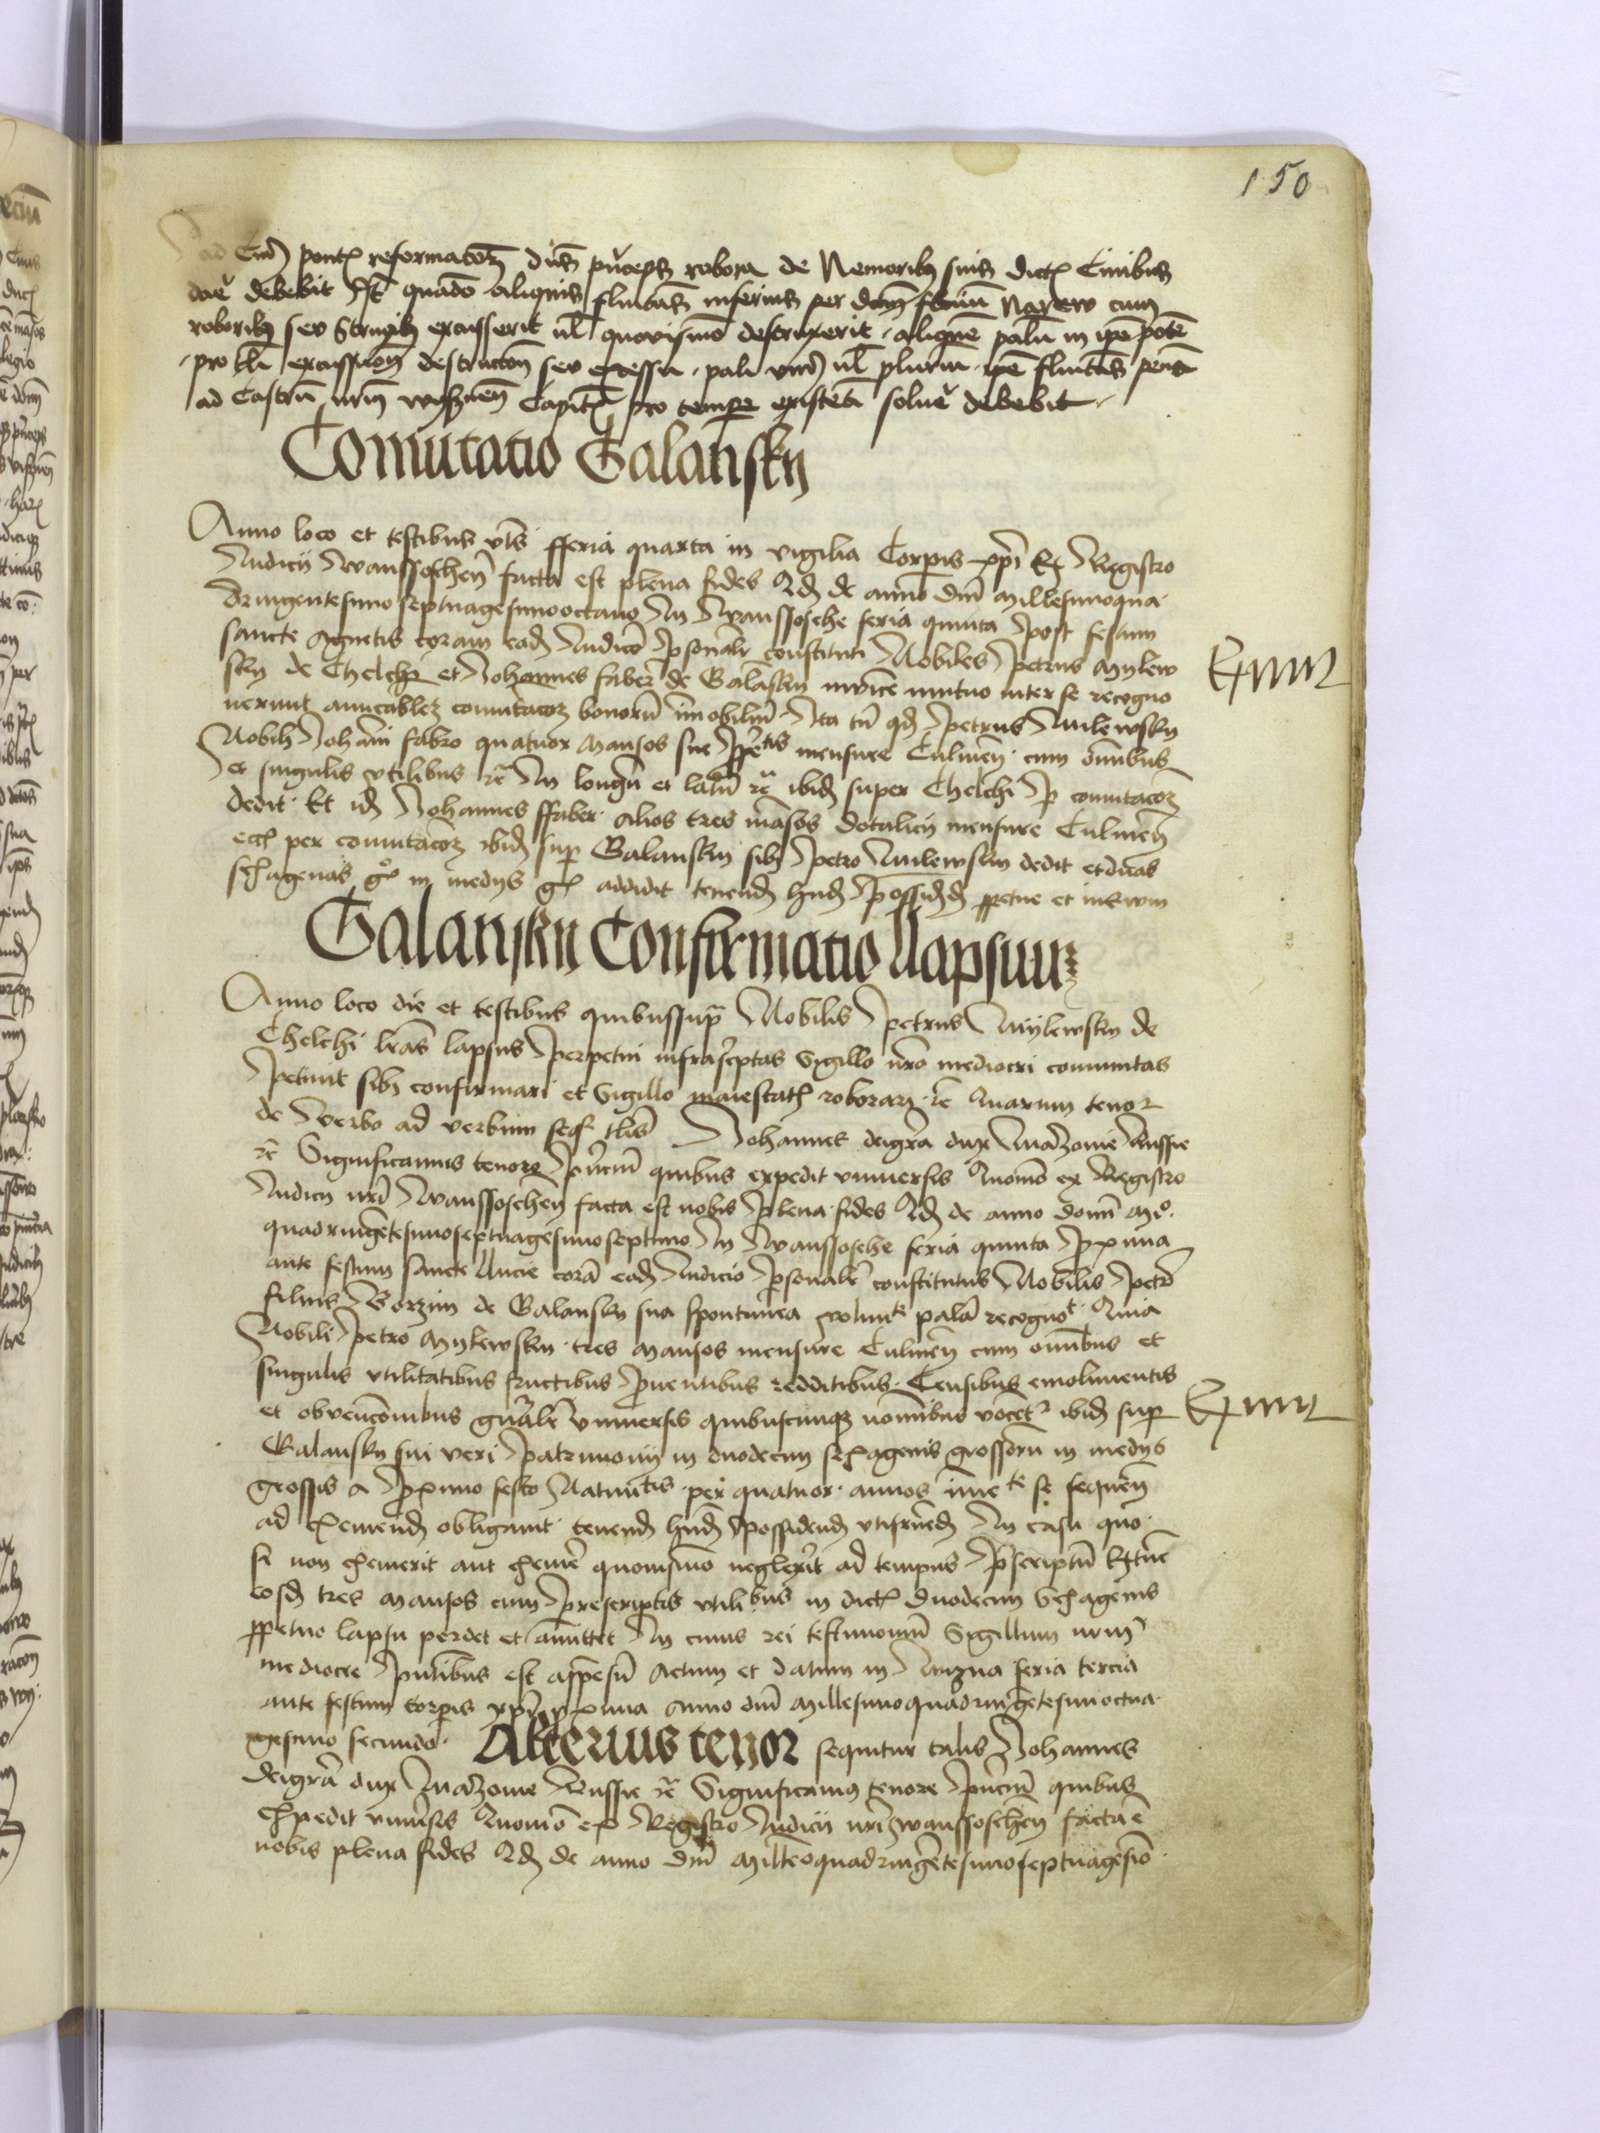 150
ad Eiusd pontis reformacoem dns princeps robora de Nemoribus suis dictis Civibus
dare debebit Et quando aliquis fluitans inferius per dictum fluvium Narew cum
roboribus seu Struibus excusserit vel quovismodo destruxerit aliquem palum in ipso ponte
pro tali excussione destructione seu excessu pali unius vel plurium ipse fluitans penam
ad Castrum nrm Capit pro tempore existenti solvere debebit
Comutatio Galansky
Anno loco et testibus feria quarta in vigilia Corporis xpi Ex Registro
Iudicii Wanssoschen facta est plena fides Quod de anno dni Millesimoqua
dringentesimoseptuagesimooctavo In Wanssosche feria quinta post festum
sancte Agnetis coram eod Iudicio psonalr constituti Nobiles Petrus Mylew
sky de Chelchi et Johannes faber de Galansky invicem mutuo inter se recogno
verunt amicabilem comutacoem bonorum imobilium Ita tn qd Petrus Milewsky
Nobili Johani fabro quatuor mansos sue mensure Culmen cum omnibus
et singulis utilibus etc In longum et latum etc ibid super Chelchi p comutacoem
dedit Et id Johannes ffaber alios tres mansos dotalicii mensure Culmen
per comutacoem ibid sup Galansky sibi Petro Milewsky dedit et duas
sexagenas gr in medys gr addidit tenend hnd possidend ppetue et in evum
Galansky Confirmatio lapsuum
Anno loco die et testibus quibus supra Nobilis Petrus Mylewsky de
Chelchi lras lapsus perpetui infrascriptas Sigillo nro mediocri comunitas
petiuit sibi confirmari et Sigillo maiestatis roborari etc Quarum tenor
de verbo ad verbum seqr talis Johannes deigra dux Mazovie Russie
etc Significamus tenore pncium quibus expedit universis Quomo ex Registro
Iudicii nri Wanssoschen facta est nobis plena fides Quod de anno domini Mo
quadringetesimoseptuagesimoseptimo In Wanssosche feria quinta pxima
ante festum sancte Lucie cora eod Iudicio psonalr constitutus Nobilis Petrus
filius Borzim de Galansky sua spontanea voluntate palam recognovit Quia
Nobili Petro Mylewsky tres mansos mensure Culmen cum omnibus et
singulis utilitatibus fructibus proventibus redditibus Censibus emolimentis
et obvencionibus gnalr universis quibuscunque nominibus vocentur ibid sup
Galansky sui veri patrimonii in duodecim sexagenis grossorum in medys
grossis a proximo festo Nativitatis per quatuor annos imete se sequen
ad exemend obligavit tenend hnd possidend utifruend In casu quo
si non exemerit aut exemere quovismodo neglexerit ad tempus prescriptum Extunc
eosd tres mansos cum prescriptis utilibus in dictis duodecim Sexagenis
ppetuo lapsu perdet et amittet In cuius rei testimonium Sigillum nrum
mediocre pntibus est appensum Actum et datum in Wizna feria tercia
ante festum corporis xpi pxima Anno dni Millesimoquadringetesimooctua
gesimo secundo Alterius tenor sequitur talis Johannes
deigra dux Mazovie Russie etc Significamus tenore pncium quibus
expedit universis Quomo ex Registro Iudicii nri Wanssoschen facta e
nobis plena fides Quod de anno dni Milleoquadringetesimoseptuagesimo